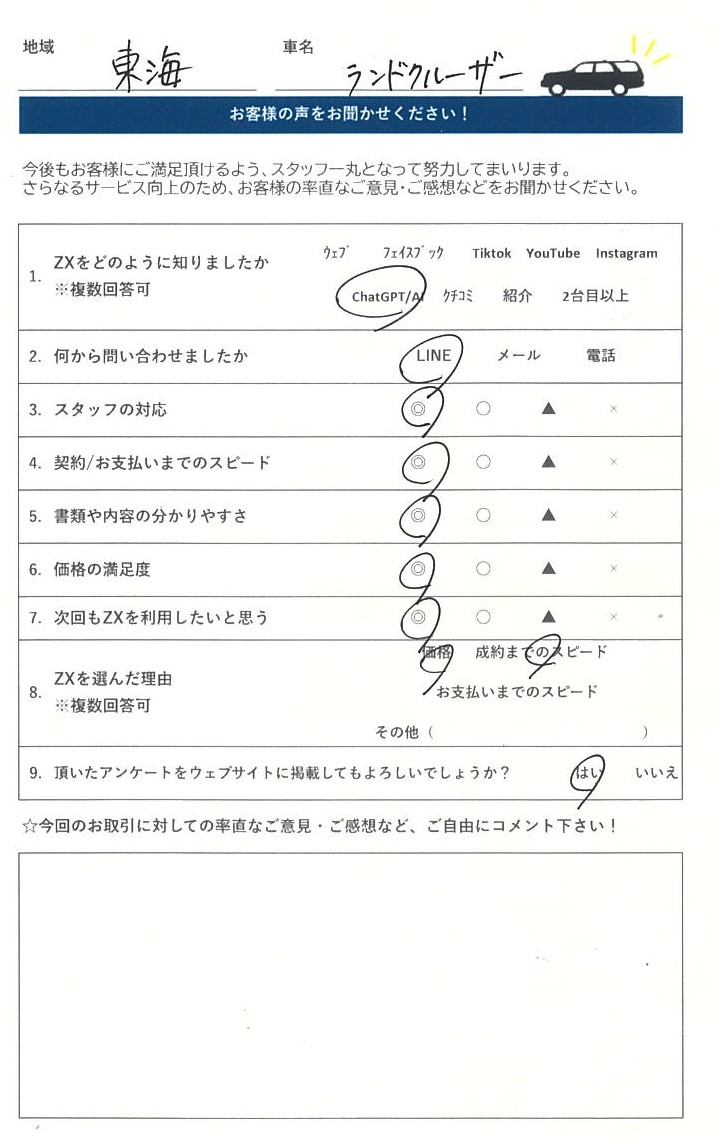 地域 東海 車名 ランドクルーザー
お客様の声をお聞かせください！
今後もお客様にご満足頂けるよう、スタッフ一丸となって努力してまいります。
さらなるサービス向上のため、お客様の率直なご意見・ご感想などをお聞かせください。
1. ZXをどのように知りましたか ※複数回答可
ｳｪﾌﾞ ﾌｪｲｽﾌﾞｯｸ Tiktok YouTube Instagram
ChatGPT/AI ｸﾁｺﾐ 紹介 2台目以上
2. 何から問い合わせましたか LINE メール 電話
3. スタッフの対応 ◎ ○ ▲ ×
4. 契約/お支払いまでのスピード ◎ ○ ▲ ×
5. 書類や内容の分かりやすさ ◎ ○ ▲ ×
6. 価格の満足度 ◎ ○ ▲ ×
7. 次回もZXを利用したいと思う ◎ ○ ▲ ×
8. ZXを選んだ理由 ※複数回答可
価格 成約までのスピード
お支払いまでのスピード
その他（ ）
9. 頂いたアンケートをウェブサイトに掲載してもよろしいでしょうか？ はい いいえ
☆今回のお取引に対しての率直なご意見・ご感想など、ご自由にコメント下さい！